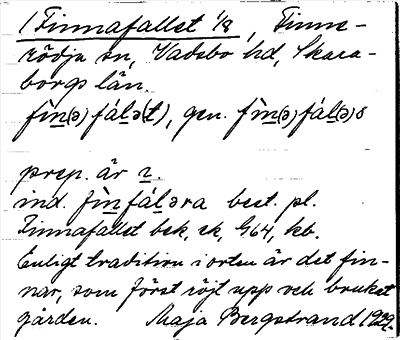 1 Finnafallet 1/8, Finne-
rödja sn, Vadsbo hd, Skara-
borgs län.
fìn(ə)fál̠ə(t), gen. fìn̠(ə)fál̠(ə)s
prep. är ɩ.
ind. fìn̠fál̠əra best. pl.
Finnafallet bek, ek, G64, kb.
Enligt tradition i orten är det fin-
nar, som först röjt upp och brukat
gården. Maja Bergstrand 1929.